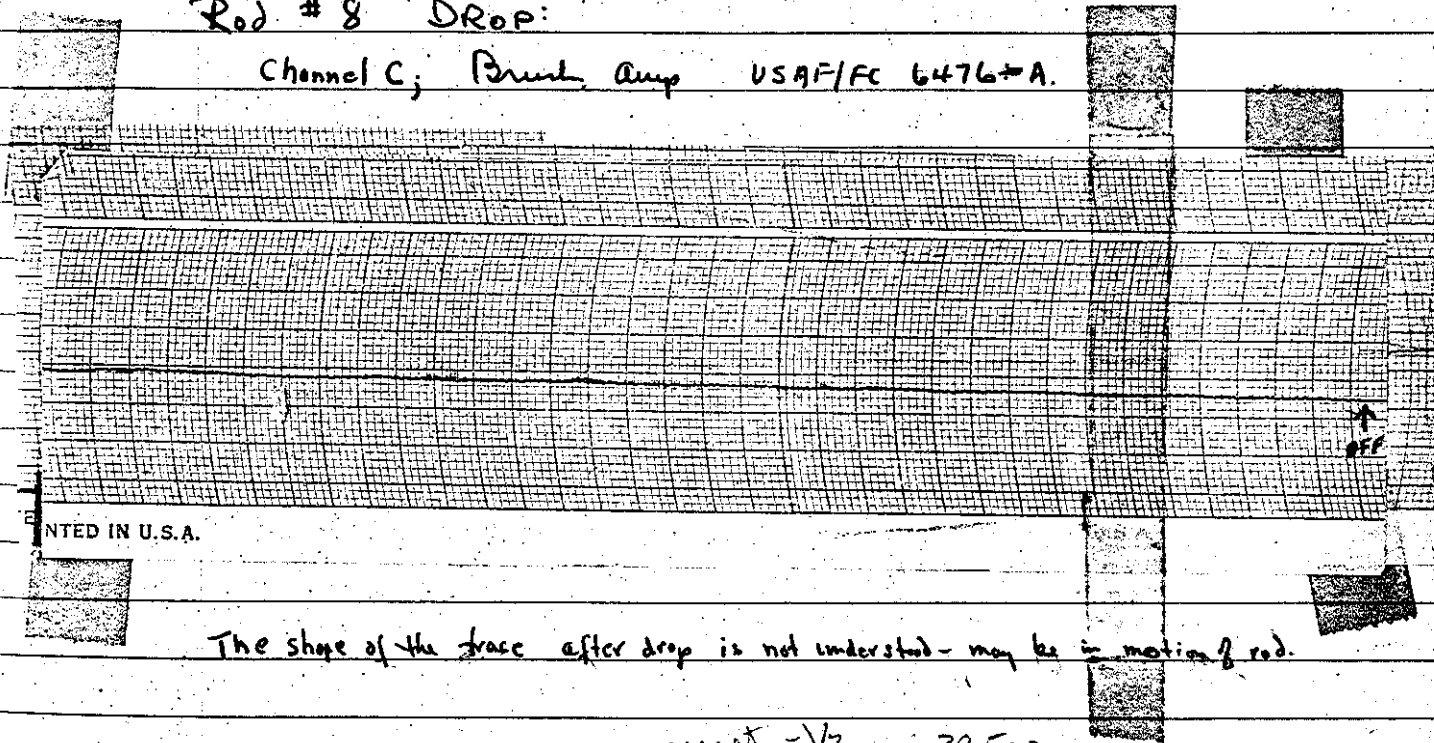 Rod # 8 DROP:
Channel C; Brush amp USAF/FC 6476-A.
OFF
NTED IN U.S.A.
The shape of the trace after drop is not understood - may be in motion of rod.